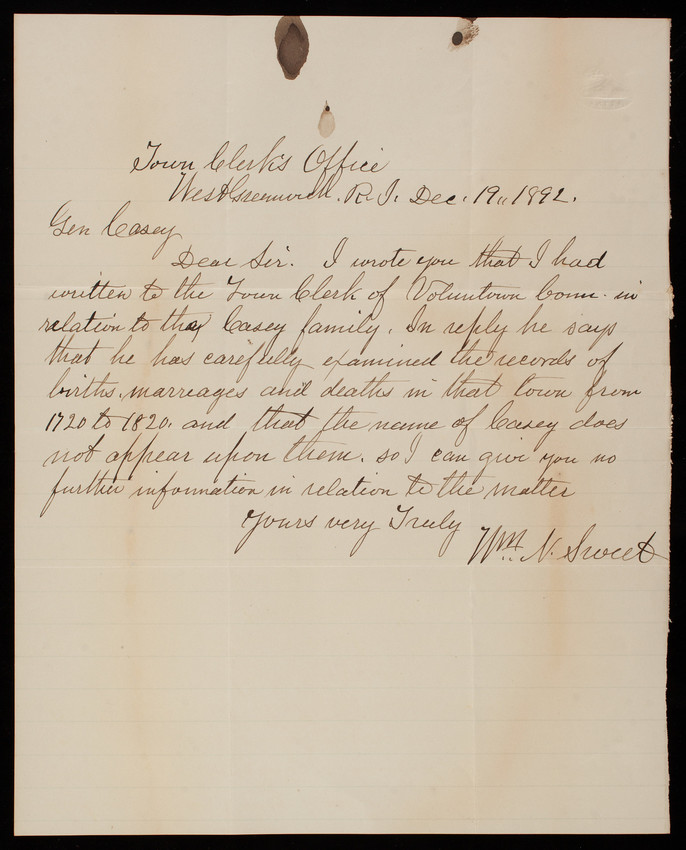 Town Clerk's Office
West Greenwich. R. I. Dec. 19,, 1892.
Gen Casey
Dear Sir. I wrote you that I had
written to the Town Clerk of Voluntown Conn. in
relation to the Casey family. In reply he says
that he has carefully examined the records of
births, marreages and deaths in that town from
1720 to 1820. and that the name of Casey does
not appear upon them. so I can give you no
further information in relation to the matter
Yours very Truly
Wm. N. Sweet